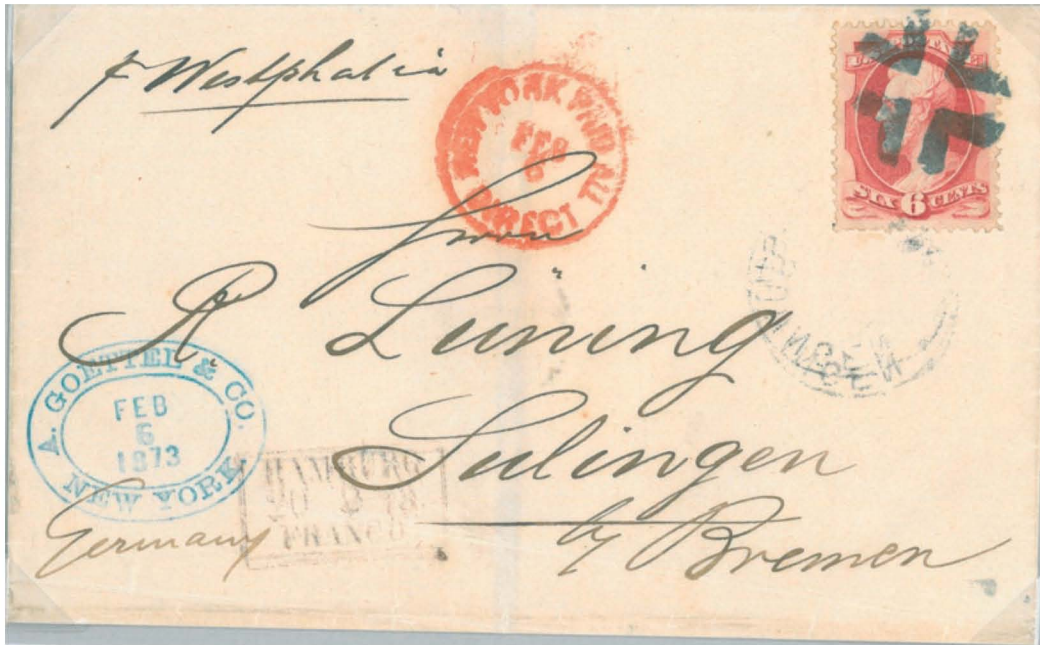 p Westphalia
NEW YORK PAID ALL
FEB
6
DIRECT
SIX 6 CENTS
Herrn
R. Lüning
Sulingen
by Bremen
Germany
A. GOETTEL & CO.
FEB
6
1873
NEW YORK
HAMBURG
FRANCO